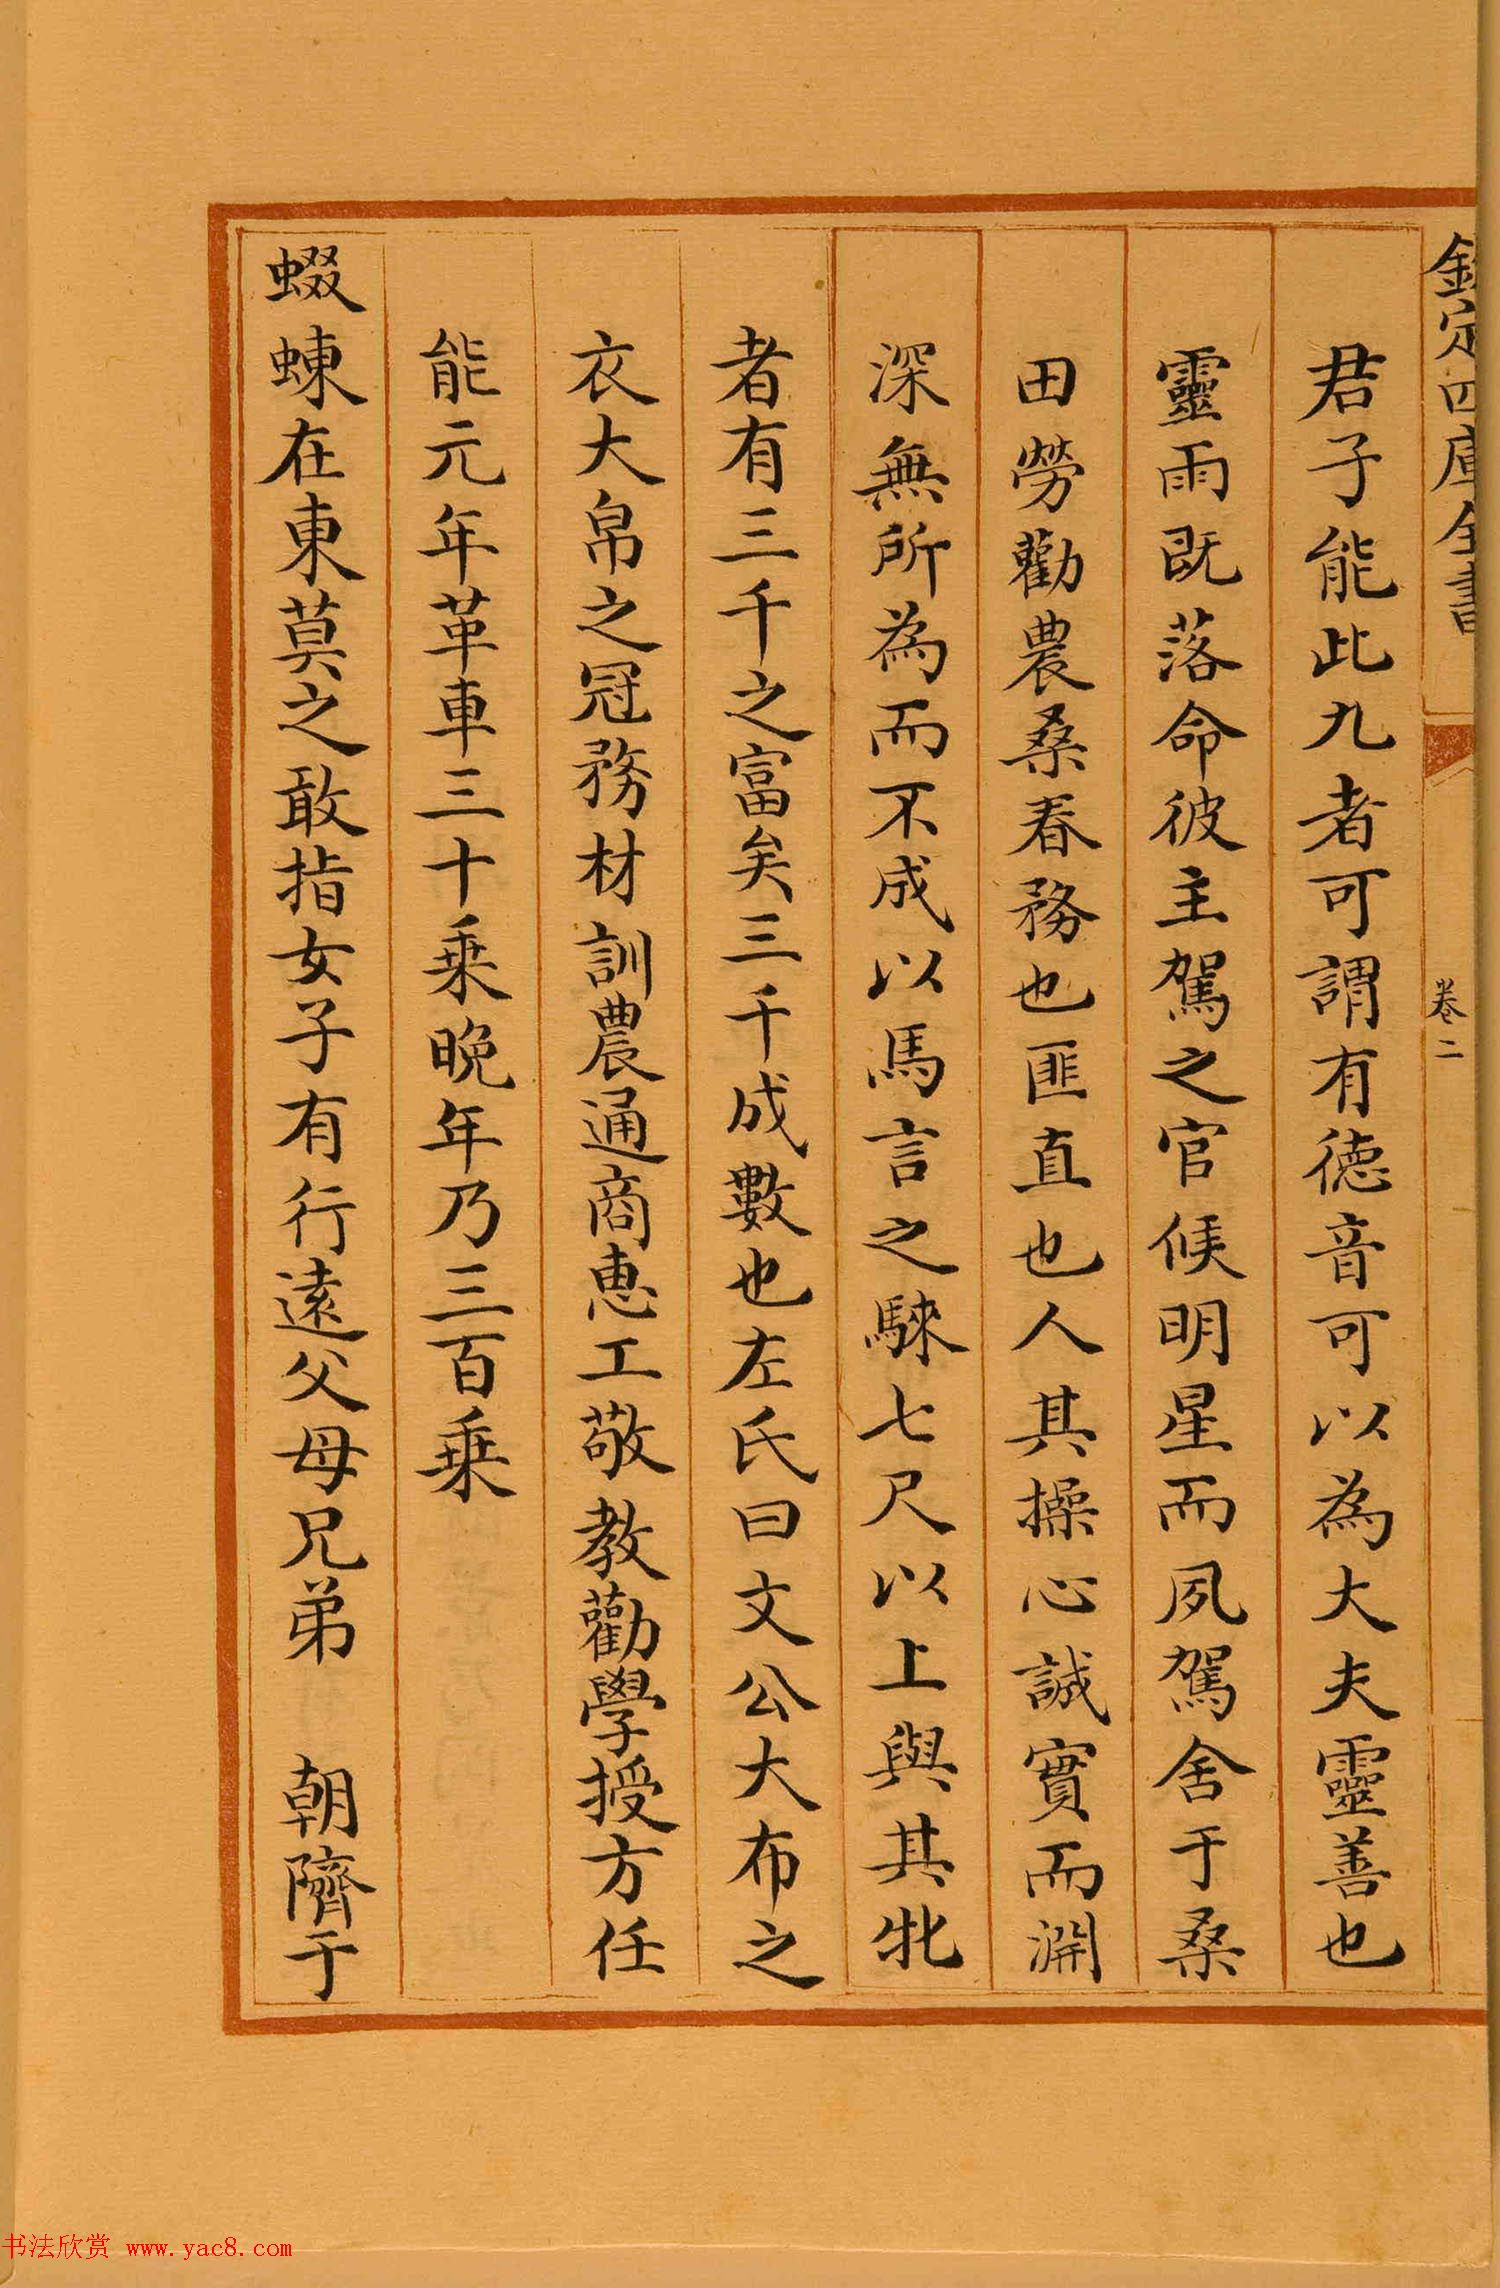 欽定四庫全書
卷二
君子能此九者可謂有德音可以為大夫靈善也
靈雨既落命彼主駕之官候明星而夙駕舍于桑
田勞勸農桑春務也匪直也人其操心誠實而淵
深無所為而不成以馬言之騋七尺以上與其牝
者有三千之富矣三千成數也左氏曰文公大布之
衣大帛之冠務材訓農通商惠工敬教勸學授方任
能元年革車三十乗晚年乃三百乗
蝃蝀在東莫之敢指女子有行逺父母兄弟 朝隮于
书法欣赏 www.yac8.com